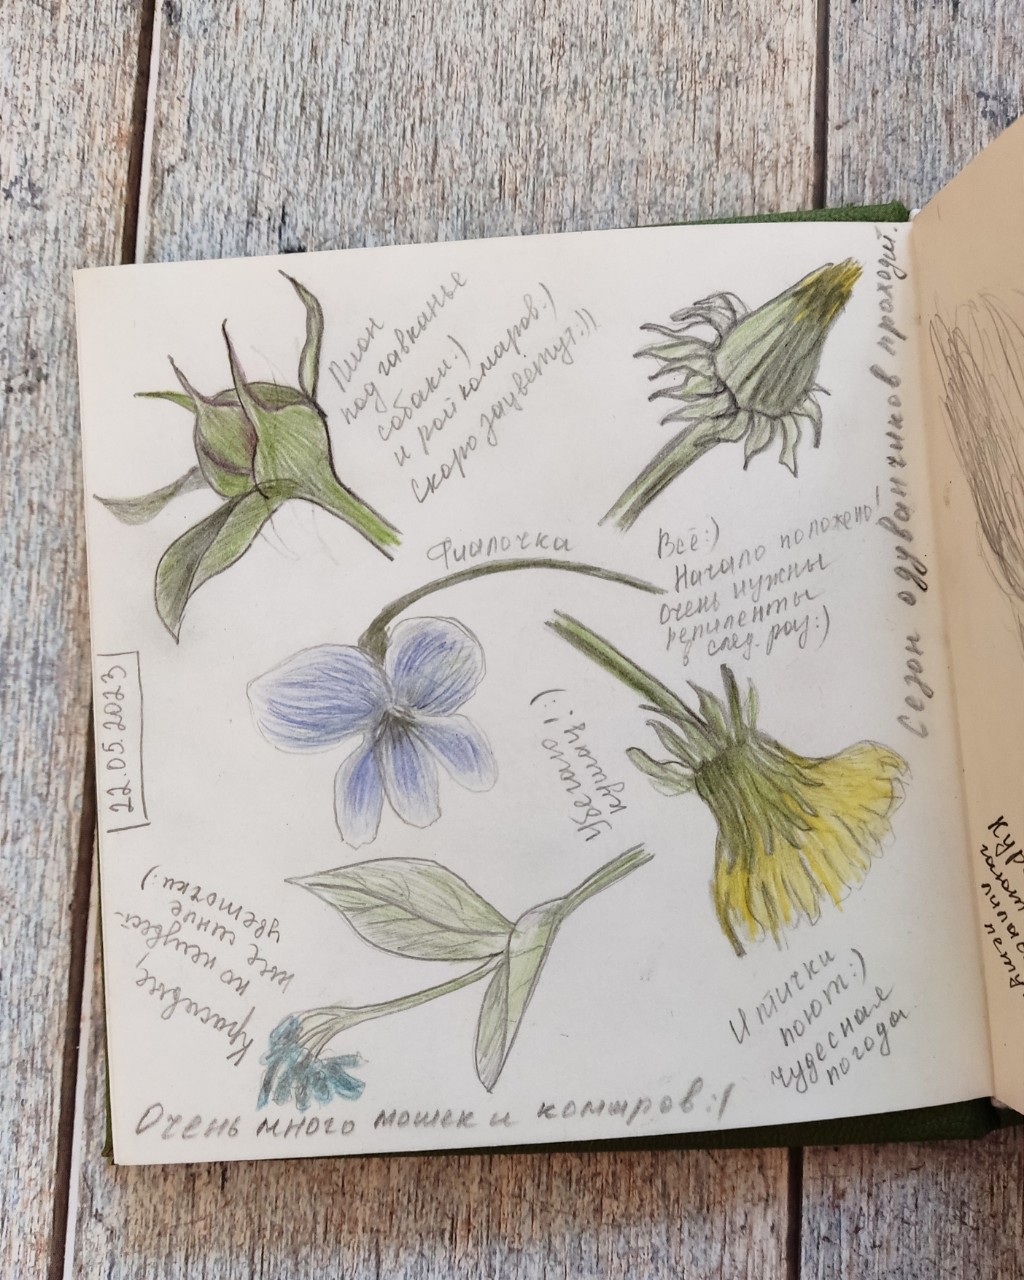 Пион
под гавканье
собаки:)
и рой комаров:)
Скоро зацветут:))
Сезон одуванчиков в проходит.
Фиалочка
Всё:)
Начало положено!
очень нужны
репиленты
в след. раз:)
22.05.2023
Убегаю
Красивые,
но неизвест-
ные синие
цветочки:)
И птички
поют:)
чудесная
погода
Очень много мошек и комаров:/